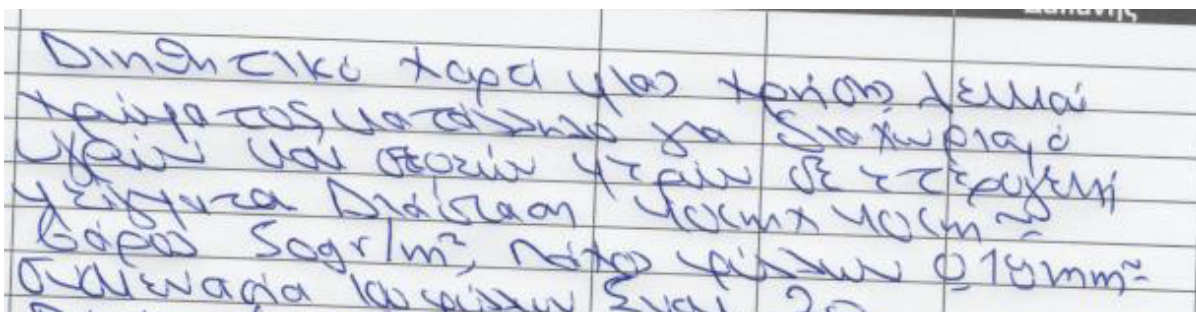 Δαπάνης
Διηθητικό χαρτί μιας χρήσης λευκού
χρώματος κατάλληλο για διαχωρισμό
υγρών και στερεών μερών σε ετερογενή
μείγματα Διάσταση 40cm x 40cm ~
βάρος 50gr/m², πάχος φύλλων 0,16mm ~
συσκευασία φύλλων